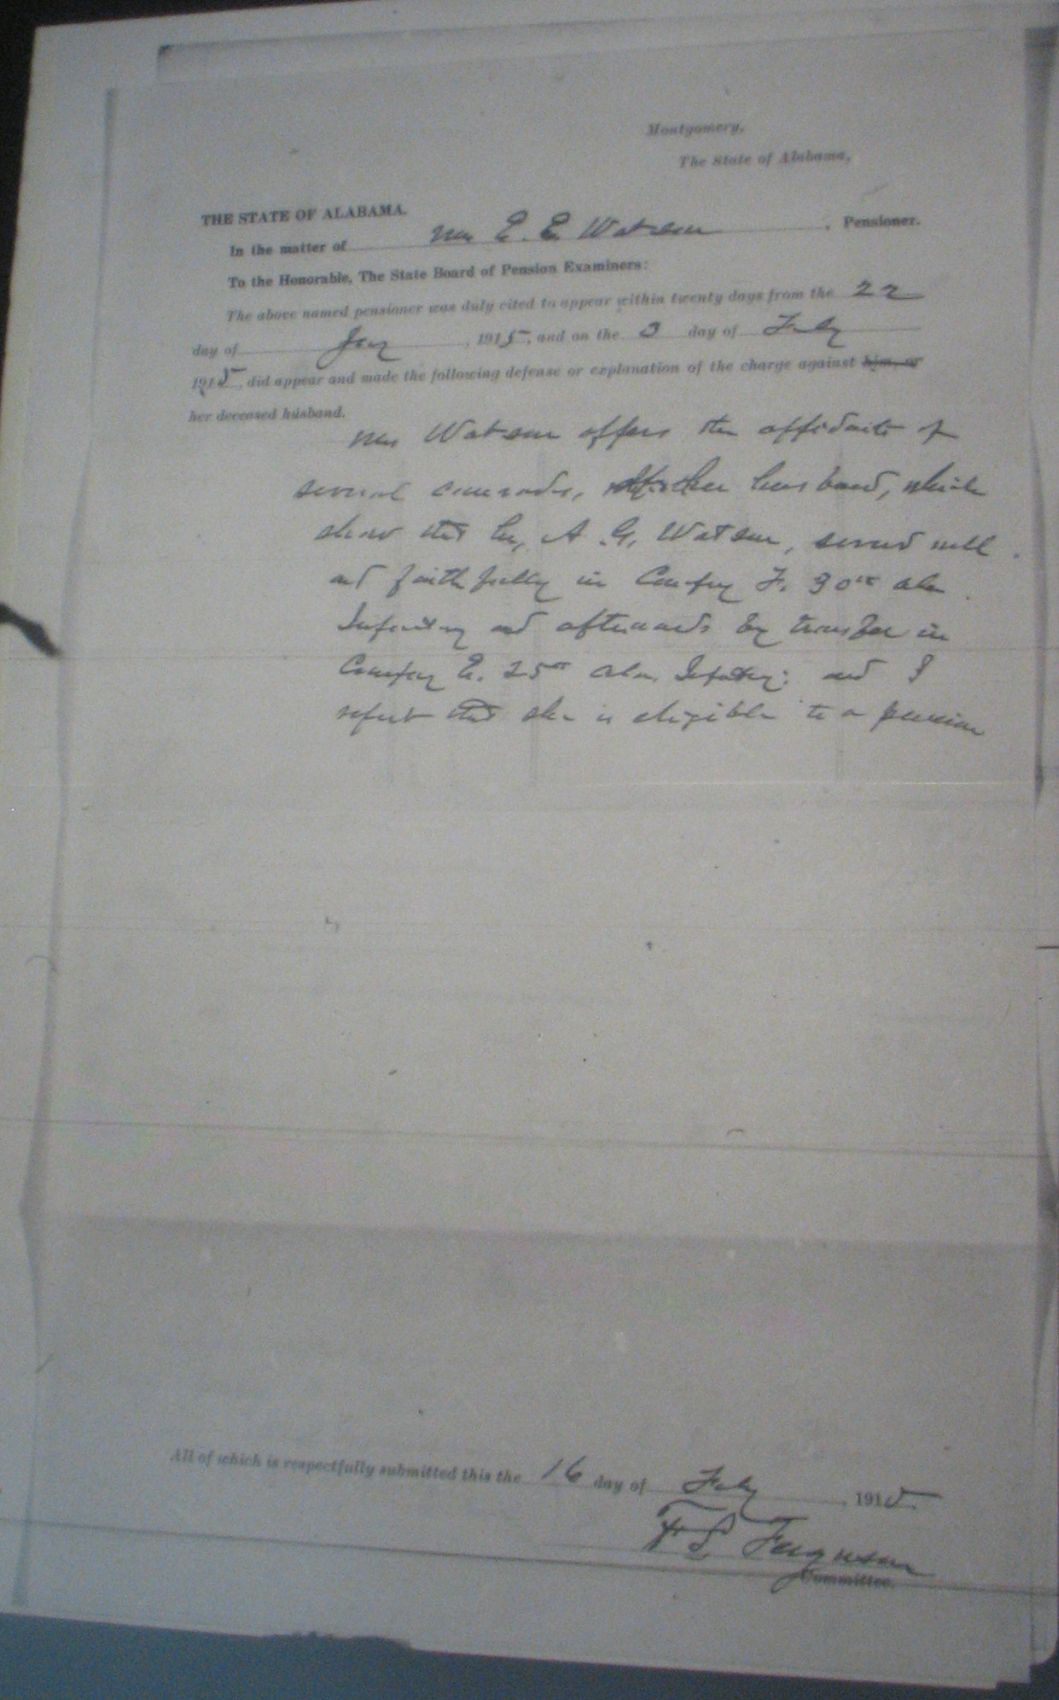 Montgomery,
The State of Alabama,
THE STATE OF ALABAMA.
In the matter of Mrs E. E. Watson, Pensioner.
To the Honorable, The State Board of Pension Examiners:
The above named pensioner was duly cited to appear within twenty days from the 22
day of Jany, 1915, and on the 3 day of Feby
1915, did appear and made the following defense or explanation of the charge against him, or
her deceased husband.
Mrs Watson offers the affidavits of
several comrades, of her husband, which
show that he, A. G. Watson, served well
and faithfully in Company F. 30th Ala
Infantry and afterwards by transfer in
Company E. 25th Ala. Infantry: and I
report that she is eligible to a pension
All of which is respectfully submitted this the 16 day of Feby, 1915.
F S Ferguson
Committee.